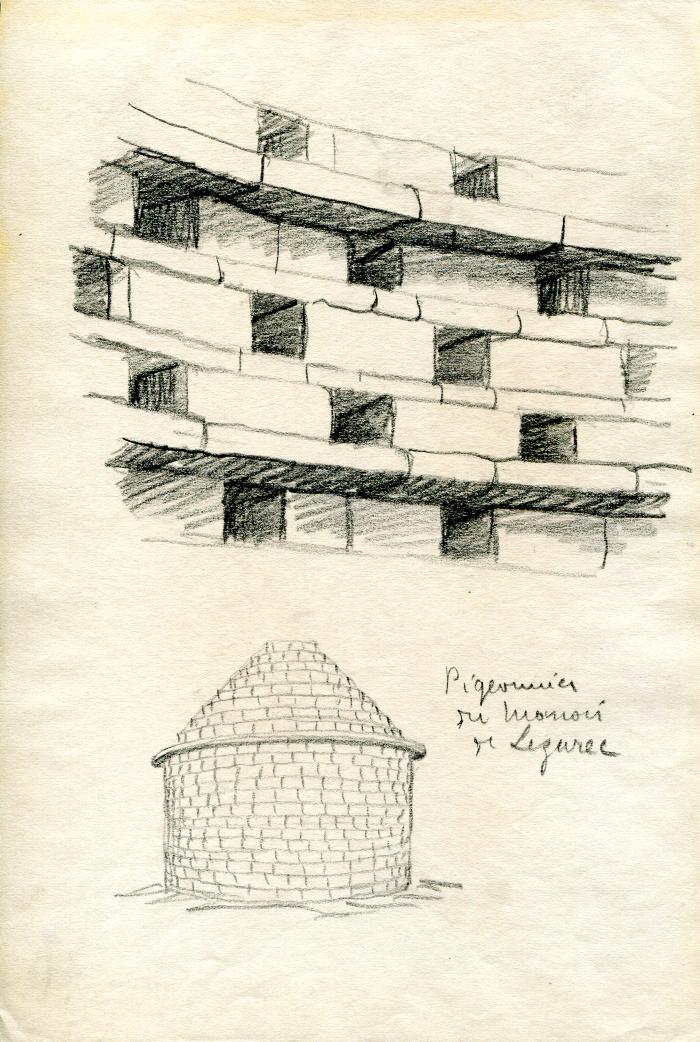 Pigeonnier
du Manoir
de Lezurec